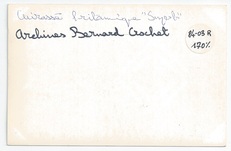 Cuirassé britannique "Superb"
Archives Bernard Crochet
84-03 R
170%